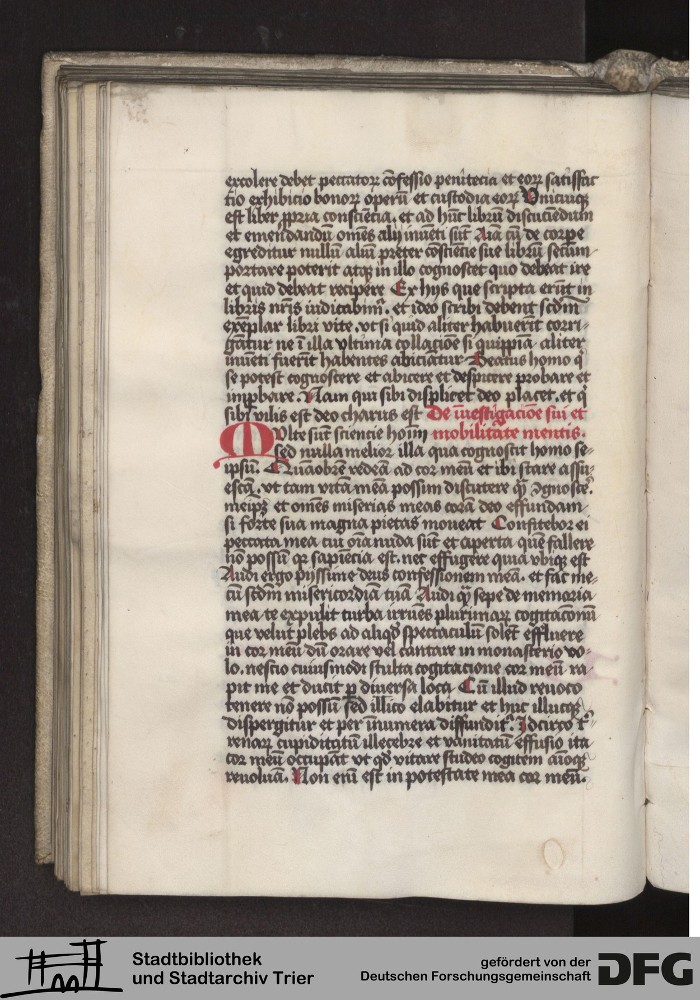 excolere debet peccatorꝝ cōfessio penitēcia et eorꝝ satisfac
tio exhibicio bonorꝝ operū et custodia eorꝝ Vnicuiqꝫ
est liber ꝓpria consciēcia. et ad hūc librū discuciendum
et emendandū omēs alij inuēti sūt Aīa cū de corpe
egreditur nullū aliū preter cōsciēcie sue librū secum
portare poterit atqꝫ in illo cognoscet quo debeat ire
et quid debeat recipere Ex hijs que scripta erūt in
libris nr̄is iudicabimʳ. et ideo scribi debent scdm
exēplar libri vite. vt si quid aliter habuerit corri-
gātur ne ī illa vltima collacōe si quippiā aliter
inuēti fuerīt habentes abiciātur Beatus homo q
se potest cognoscere et abicere et despicere probare et
improbare. Nam qui sibi displicet deo placet. et q
sibi vilis est deo charus est De īuestigacōe sui et
Multe sūt sciencie hoīm mobilitate mentis.
sed nulla melior illa qua cognoscit homo se-
ipsū. Quāobrē redeā ad cor meū et ibi stare assu-
escā. vt tam vitā meā possim discutere qꝫ ꝯgnosce.
meipꝫ et omēs miserias meas corā deo effundam
si forte sua magna pietas moueat Confitebor ei
peccata mea cui oīa nuda sūt et aperta quē fallere
nō possū qꝛ sapiēcia est. nec effugere quia vbique est
Audi ergo pijssime deus confessionem meā. et fac me-
cū scdm misericordiā tuā Audi qꝫ sepe de memoria
mea te expulit turba irruēs plurimarꝫ cogitacōnū
que velut plebs ad aliqd spectaculū solēt effluere
in cor meū dū orare vel cantare in monasterio vo-
lo. nescio cuiusmodi stulta cogitacione cor meū ra-
pit me et ducit ꝑ diuersa loca Cū illud reuoco
tenere nō possū sed illico elabitur et huc illucqꝫ
dispergitur et per īnumera diffūditʳ. Idcirco tʳ-
renorꝫ cupiditatū illecebre et vanitatū effusio ita
cor meū occupāt vt qd vitare studeo cogitem aīoqꝫ
reuoluā. Non enī est in potestate mea cor meū.
Stadtbibliothek
und Stadtarchiv Trier
gefördert von der
Deutschen Forschungsgemeinschaft
DFG